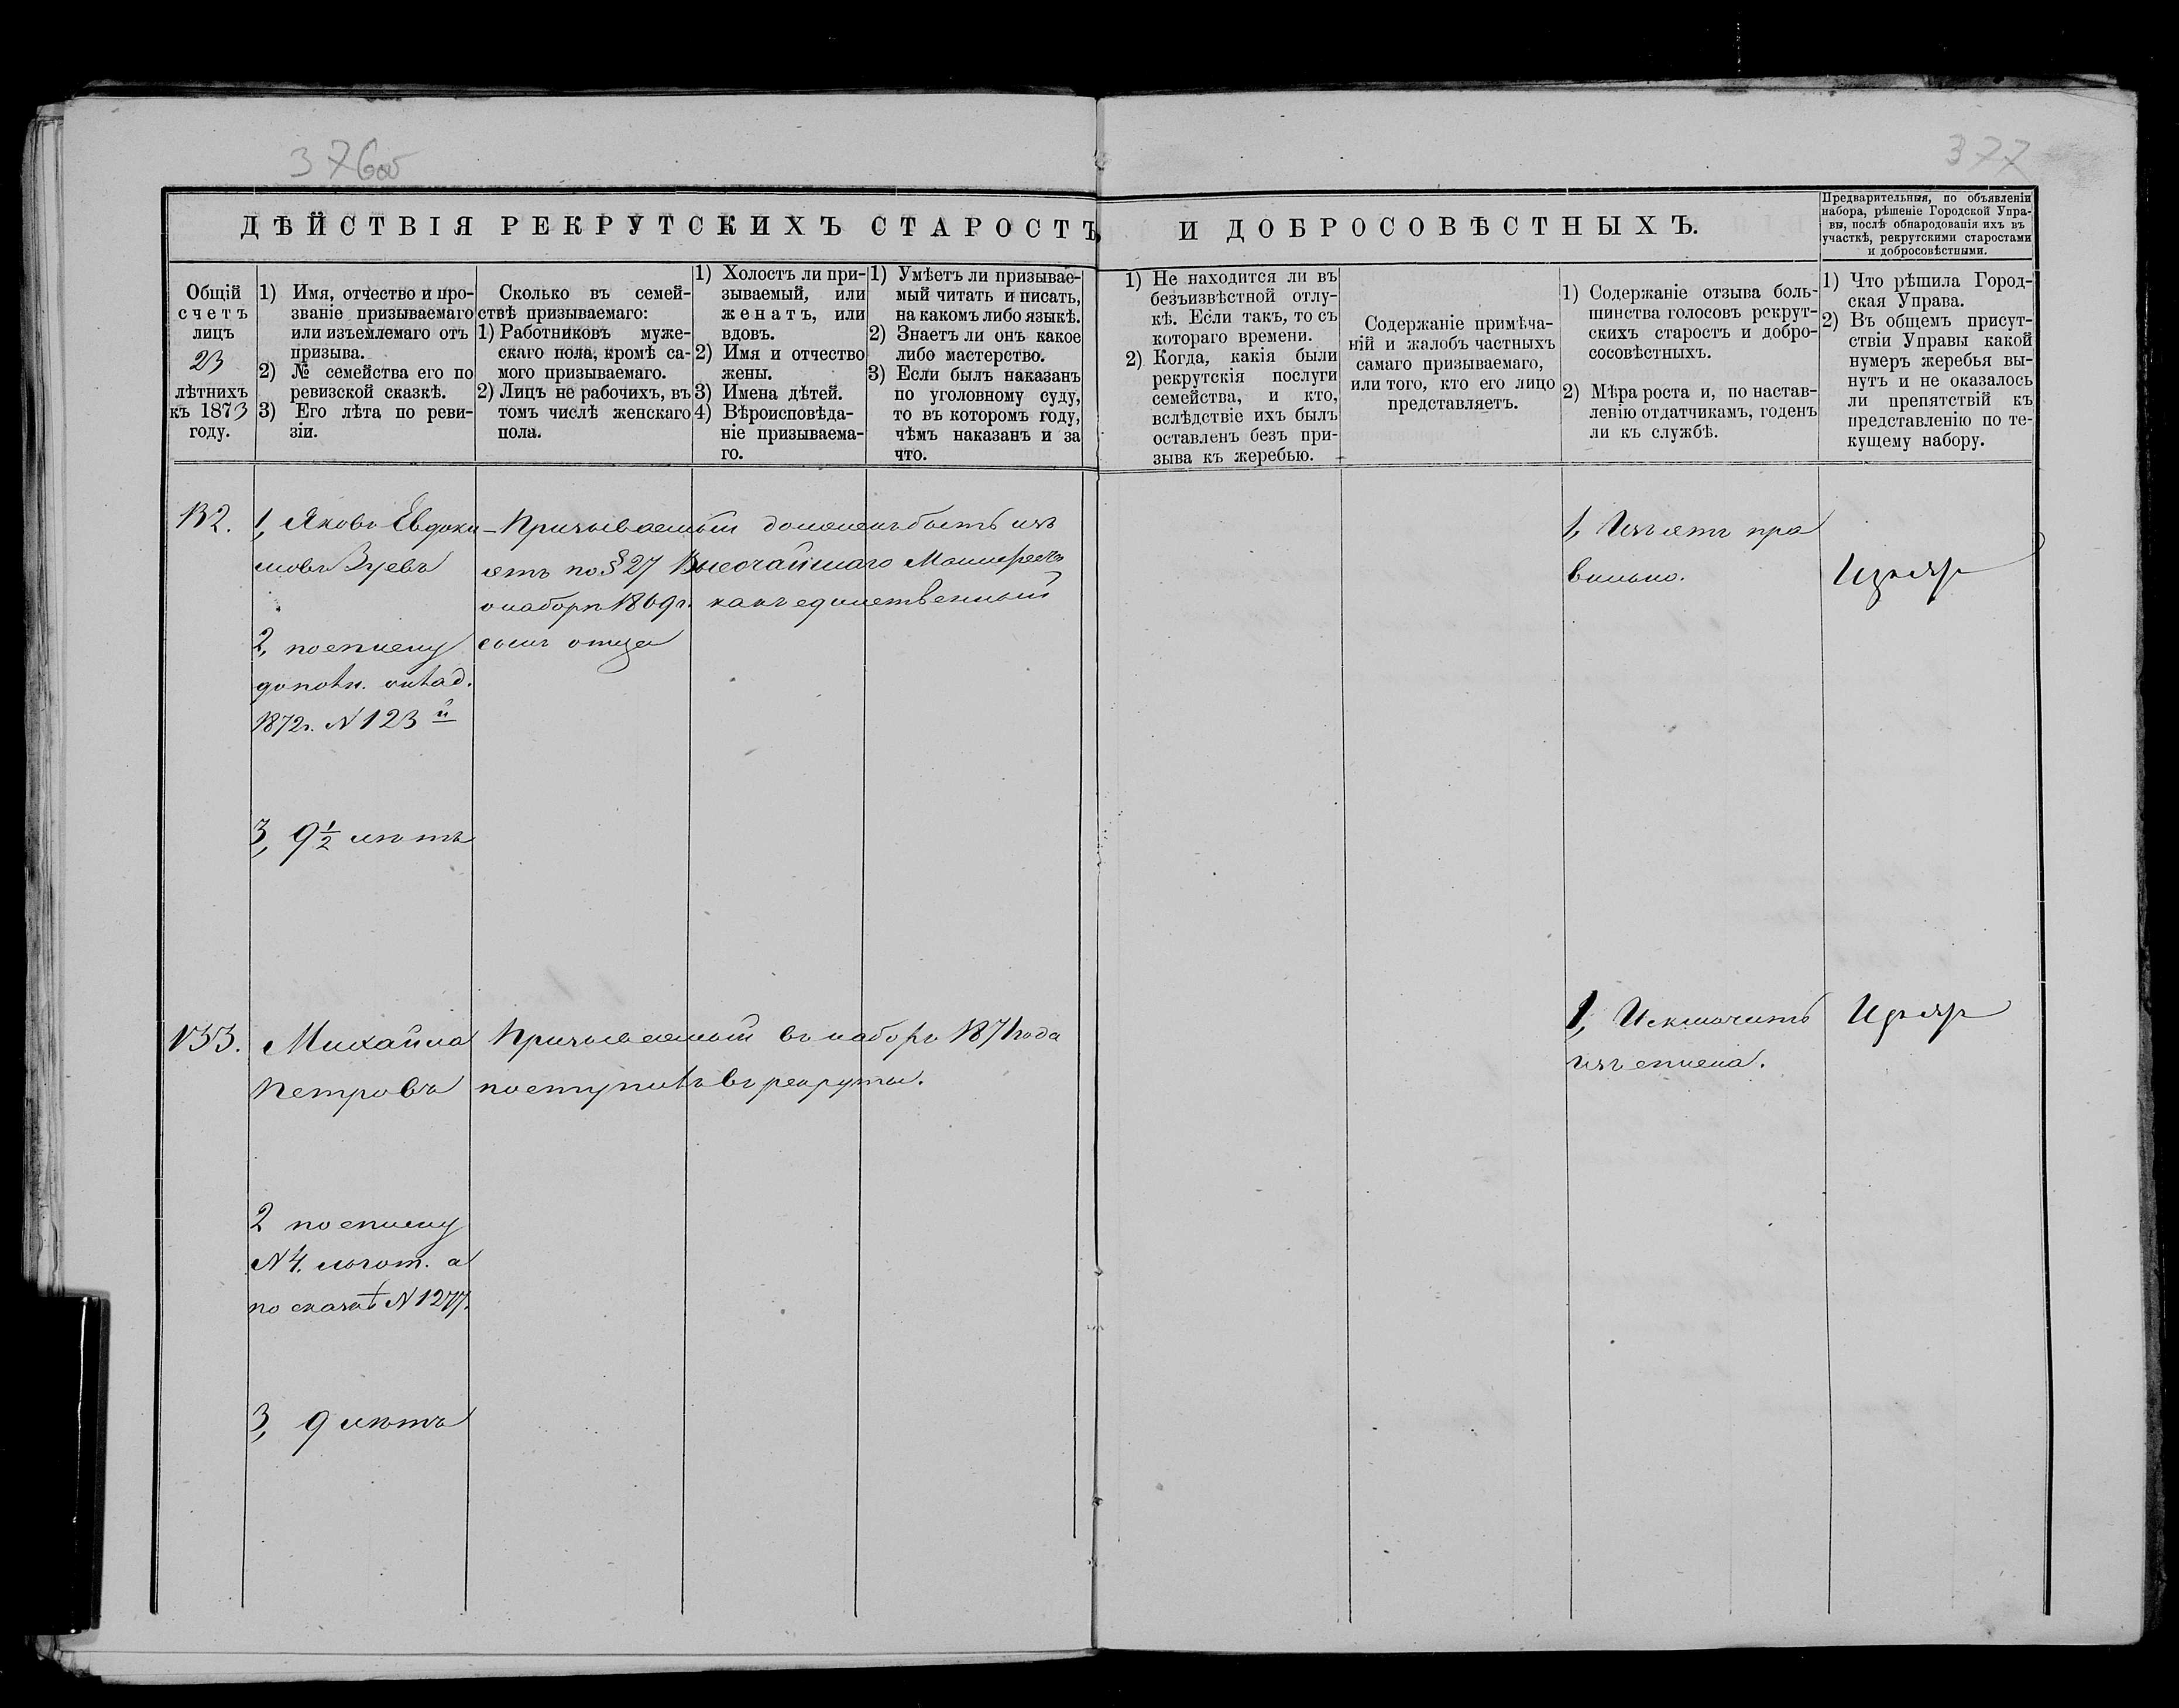 376об
377
ДѢЙСТВІЯ РЕКРУТСКИХЪ СТАРОСТЪ И ДОБРОСОВѢСТНЫХЪ.
Предварительныя, по объявленіи
набора, рѣшеніе Городской Упра-
вы, послѣ обнародованія ихъ въ
участкѣ, рекрутскими старостами
и добросовѣстными.
Общій
счетъ
лицъ
23
лѣтнихъ
къ 1873
году.
1) Имя, отчество и про-
званіе призываемаго
или изъемлемаго отъ
призыва.
2) № семейства его по
ревизской сказкѣ.
3) Его лѣта по реви-
зіи.
Сколько въ семей-
ствѣ призываемаго:
1) Работниковъ муже-
скаго пола, кромѣ са-
мого призываемаго.
2) Лицъ не рабочихъ, въ
томъ числѣ женскаго
пола.
1) Холостъ ли при-
зываемый, или
женатъ, или
вдовъ.
2) Имя и отчество
жены.
3) Имена дѣтей.
4) Вѣроисповѣда-
ніе призываема-
го.
1) Умѣетъ ли призывае-
мый читать и писать,
на какомъ либо языкѣ.
2) Знаетъ ли онъ какое
либо мастерство.
3) Если былъ наказанъ
по уголовному суду,
то въ которомъ году,
чѣмъ наказанъ и за
что.
1) Не находится ли въ
безъизвѣстной отлу-
кѣ. Если такъ, то съ
котораго времени.
2) Когда, какія были
рекрутскія послуги
семейства, и кто,
вслѣдствіе ихъ былъ
оставленъ безъ при-
зыва къ жеребью.
Содержаніе примѣча-
ній и жалобъ частныхъ
самаго призываемаго,
или того, кто его лицо
представляетъ.
1) Содержаніе отзыва боль-
шинства голосовъ рекрут-
скихъ старостъ и добро-
сосовѣстныхъ.
2) Мѣра роста и, по настав-
ленію отдатчикамъ, годенъ
ли къ службѣ.
1) Что рѣшила Город-
ская Управа.
2) Въ общемъ присут-
ствіи Управы какой
нумеръ жеребья вы-
нутъ и не оказалось
ли препятствій къ
представленію по те-
кущему набору.
132.
1, Яковъ Евдоки-
мовъ Зуевъ
2, по списку
дополн. оклад.
1872г. N 123й
3, 9½ лѣтъ
Призываемый долженъ быть изъ
ятъ по § 27 Высочайшаго Манифеста
о наборѣ 1869г. какъ единственный
сынъ отца
1, Изъятъ пра
вильно.
Изъят
133.
Михайла
Петровъ
2 по списку
N 4. льгот. а
по сказкѣ N 1277.
3, 9 лѣтъ
Призываемый въ наборъ 1871 года
поступилъ въ рекруты.
1, Исключить
изъ списка.
Изъят